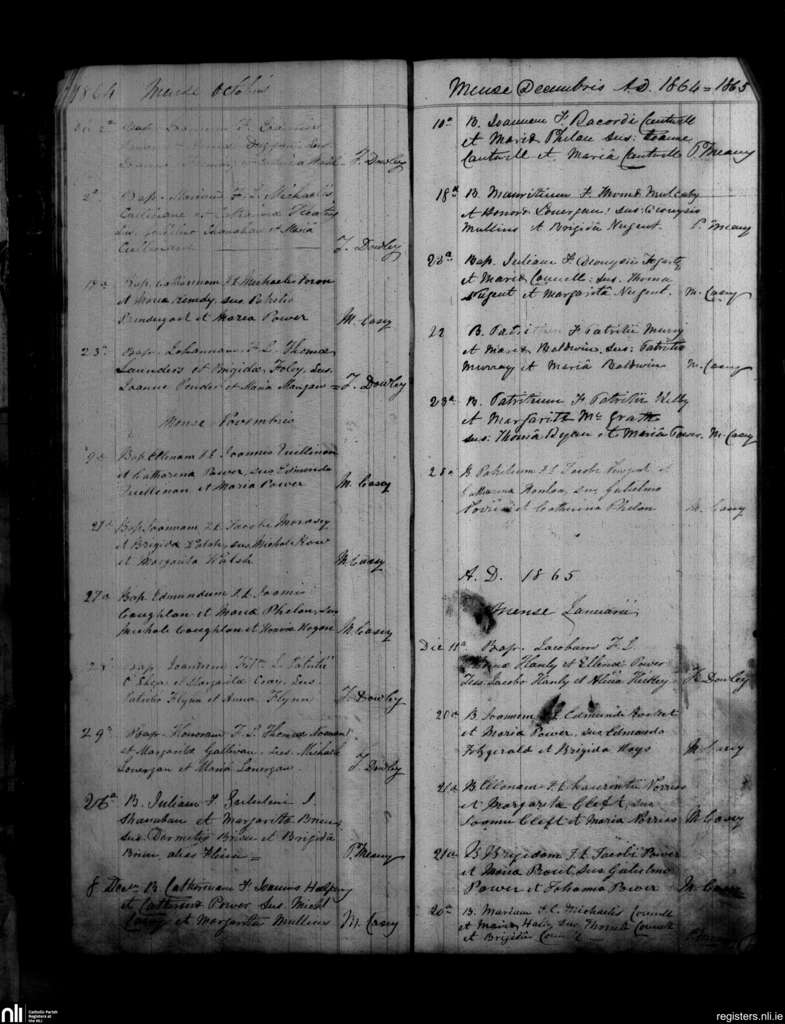 1864 Mense Octobris
Die 2ª Bap. Joannem F.
Joanne et
F. Dowley
2ª Bap. Mariam F. L. Michaelis
Cullinane et Catharina Keatig
Sus. Shanahan et Maria
Cullinane
F. Dowley
Bap. Catharinam F. L. Michaelis Foran
et Maria Kenedy, sus Patritio
Prendergast et Maria Power M. Casey
23ª Bap. Johannam F. L. Thomæ
Saunders et Brigidæ Foley, Sus.
Joanne Pender et Maria Mangan = F. Dowley
Mense Novembris
9a Bap Ellenam F L Joannis Cuillinan
et Catharina Power, sus Edmundo
Cuillinan et Maria Power M. Casey
21a Bap Joannam F L Jacobi Morasey
et Brigida Walsh, sus Michale Row
et Margarita Walsh M. Casey
27a Bap Edmundum F L Joannis
Coughlan et Maria Phelan, sus
Michale Coughlan et Honoria Hogan M. Casey
Bap. Joannem Fil L. Patritii
O'Shea et Margarita Sus.
Patritio Flynn et Anna Flynn F. Dowley
29ª Bap. Honoram F. L. Thomæ
et Margarita Gallivan. Sus. Michale
Lonergan et Maria Lonergan. F. Dowley
26ª B. Juliam F.
Shanahan et Margarita Brien
sus. Dermitio Brien et Brigida
Brien, alias = P. Meany
8 Decr B. Catherinam F. Joannis Halpeny
et Catherina Power Sus. Michl
Casey et Margaritta Mullins M. Casey
Mense Decembris A.D. 1864 = 1865
10ª B. Joannem F. Racordi Cantwell
et Maria Phelan sus: Joanne
Cantwell et Mariâ Cantwell P. Meany
18ª B. Mauritium F. Thomæ Mulcahy
et Honora Lonergan: sus: Dionysio
Mullins et Brigida Nugent. P. Meany
Bap. Juliam F. Dionysii Fogarty
et Maria Connell: sus. Thoma
Nugent et Margaritâ Nugent. M. Casey
22 B. F Patritii Murry
et Maria Baldwin, sus: Patritio
Murray et Maria Baldwin M. Casey
23ª B. Patritium F. Patritii Kelly
et Margarita Mc Grath
sus: Thomâ Ryan et Mariâ Power. M. Casey
25a B Patritium F L Jacobi et
Catharina Hanlon, sus Gulielmo
et Catherina Phelan M. Casey
A. D. 1865
Mense Januarii
Die 11ª Bap. Jacobum F. L.
Hanly et Ellena Power
Sus. Jacobo Hanly et Alicia Hickey F. Dowley
20a B Joannem Edmundi
et Maria Power, sus Edmundo
Fitzgerald et Brigida Hays M. Casey
21a B Elenam F L Laurentii Norriss
et Margarita Clift, sus
Joanne Clift et Maria Norriss M. Casey
21a B Brigidam F L Jacobi Power
et Maria Prout, sus Gulielmo
Power et Johanna Power M. Casey
20ª B. Mariam F. L. Michaelis Connell
et Maria Haly, sus Thoma Connell
et Brigida Connell
nli
Catholic Parish
Registers at
the NLI
registers.nli.ie